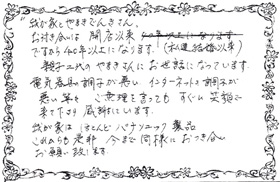 "我が家とやまきでんきさん。
お付き合いは 開店以来
ですから40年以上になります。(私達結婚以来)
親子二代のやまきさんにお世話になっています。
電気器具の調子が悪い インターネットの調子が
悪い等々 ご無理を言っても すぐに笑顔で
来て下さり 感謝しています。
我が家は ほとんど パナソニック 製品
これからも是非 今まで同様におつき合い
お願い致します。